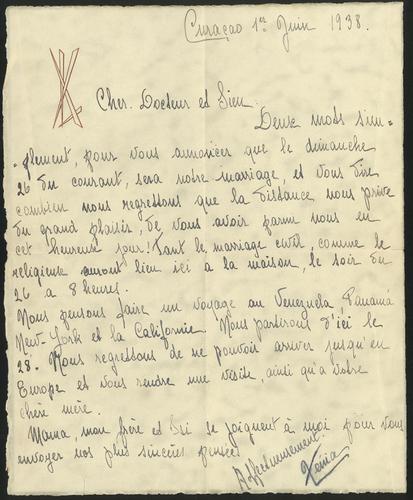 Curaçao 1er Juin 1938.
Cher Docteur et Sien.
Deux mots sim=
-plement, pour vous annoncer que le dimanche
26 du courant, sera notre marriage, et vous dire
combien nous regrettons que la distance nous prive
du grand plaisir, de vous avoir parmi nous en
cet heureuse jour! Tant le marriage civil, comme le
religieuse auront lieu ici a la maison, le soir du
26 a 8 heures.
Nous pensons faire un voyage au Venezuela, Panamá
New-York et la Californie. Nous partirons d'ici le
28. Nous regrettons de ne pouvoir arriver jusqu'en
Europe et vous rendre une visite, ainsi qu'a votre
chère mère.
Mama, mon frère et se joignent à moi pour vous
envoyer nos plus sincères pensées
Affectueusement
Xenia